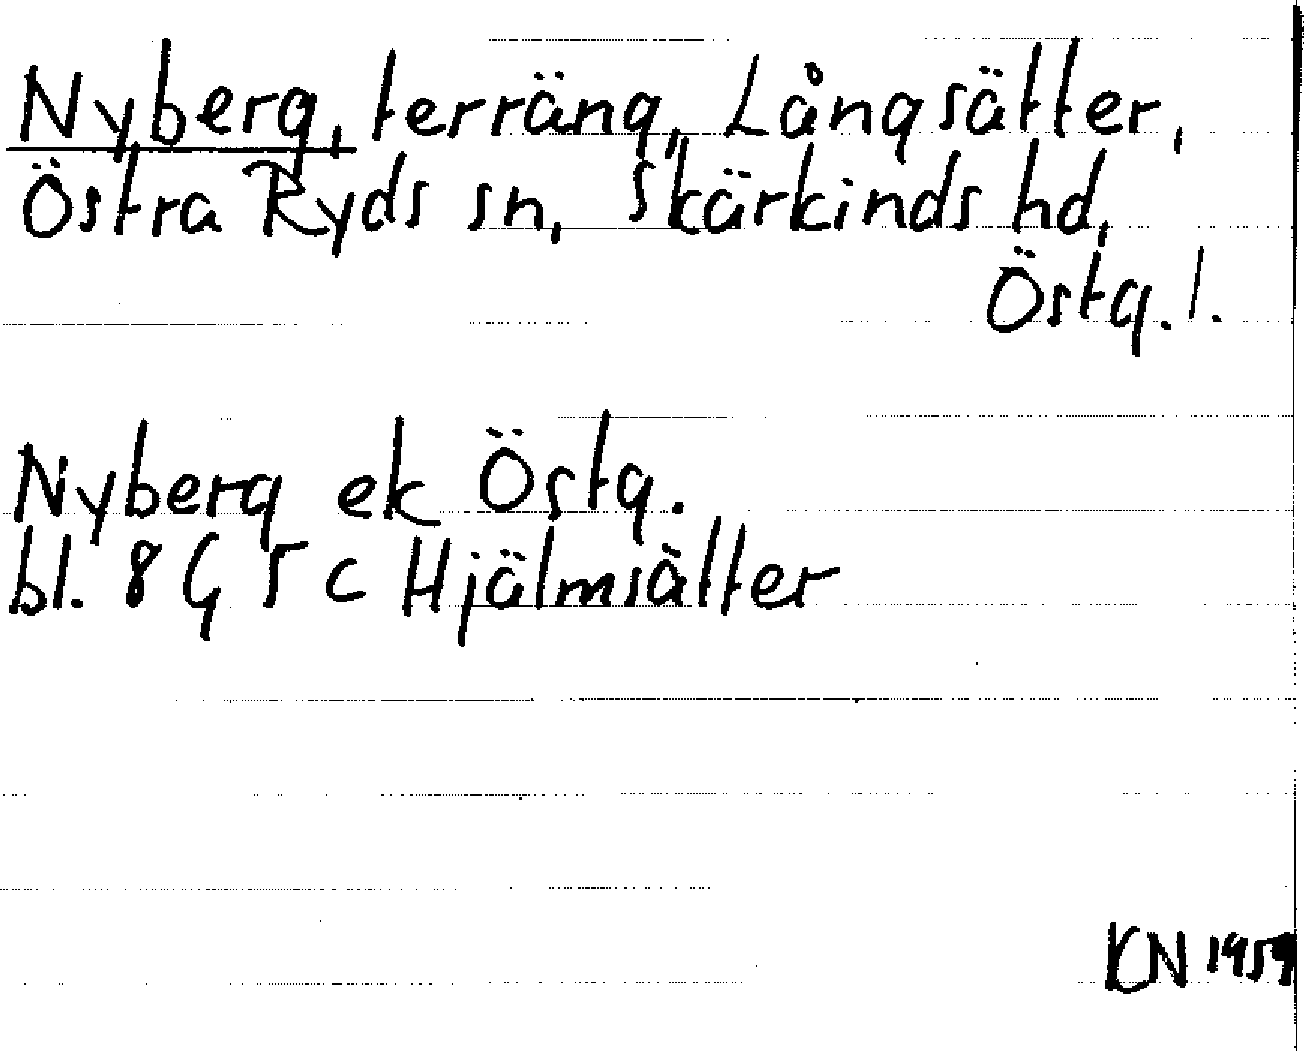 Nyberg, terräng, Långsätter,
Östra Ryds sn, Skärkinds hd,
Östg. l.
Nyberg ek Östg.
bl. 8 G 5 c Hjälmsätter
KN 1959